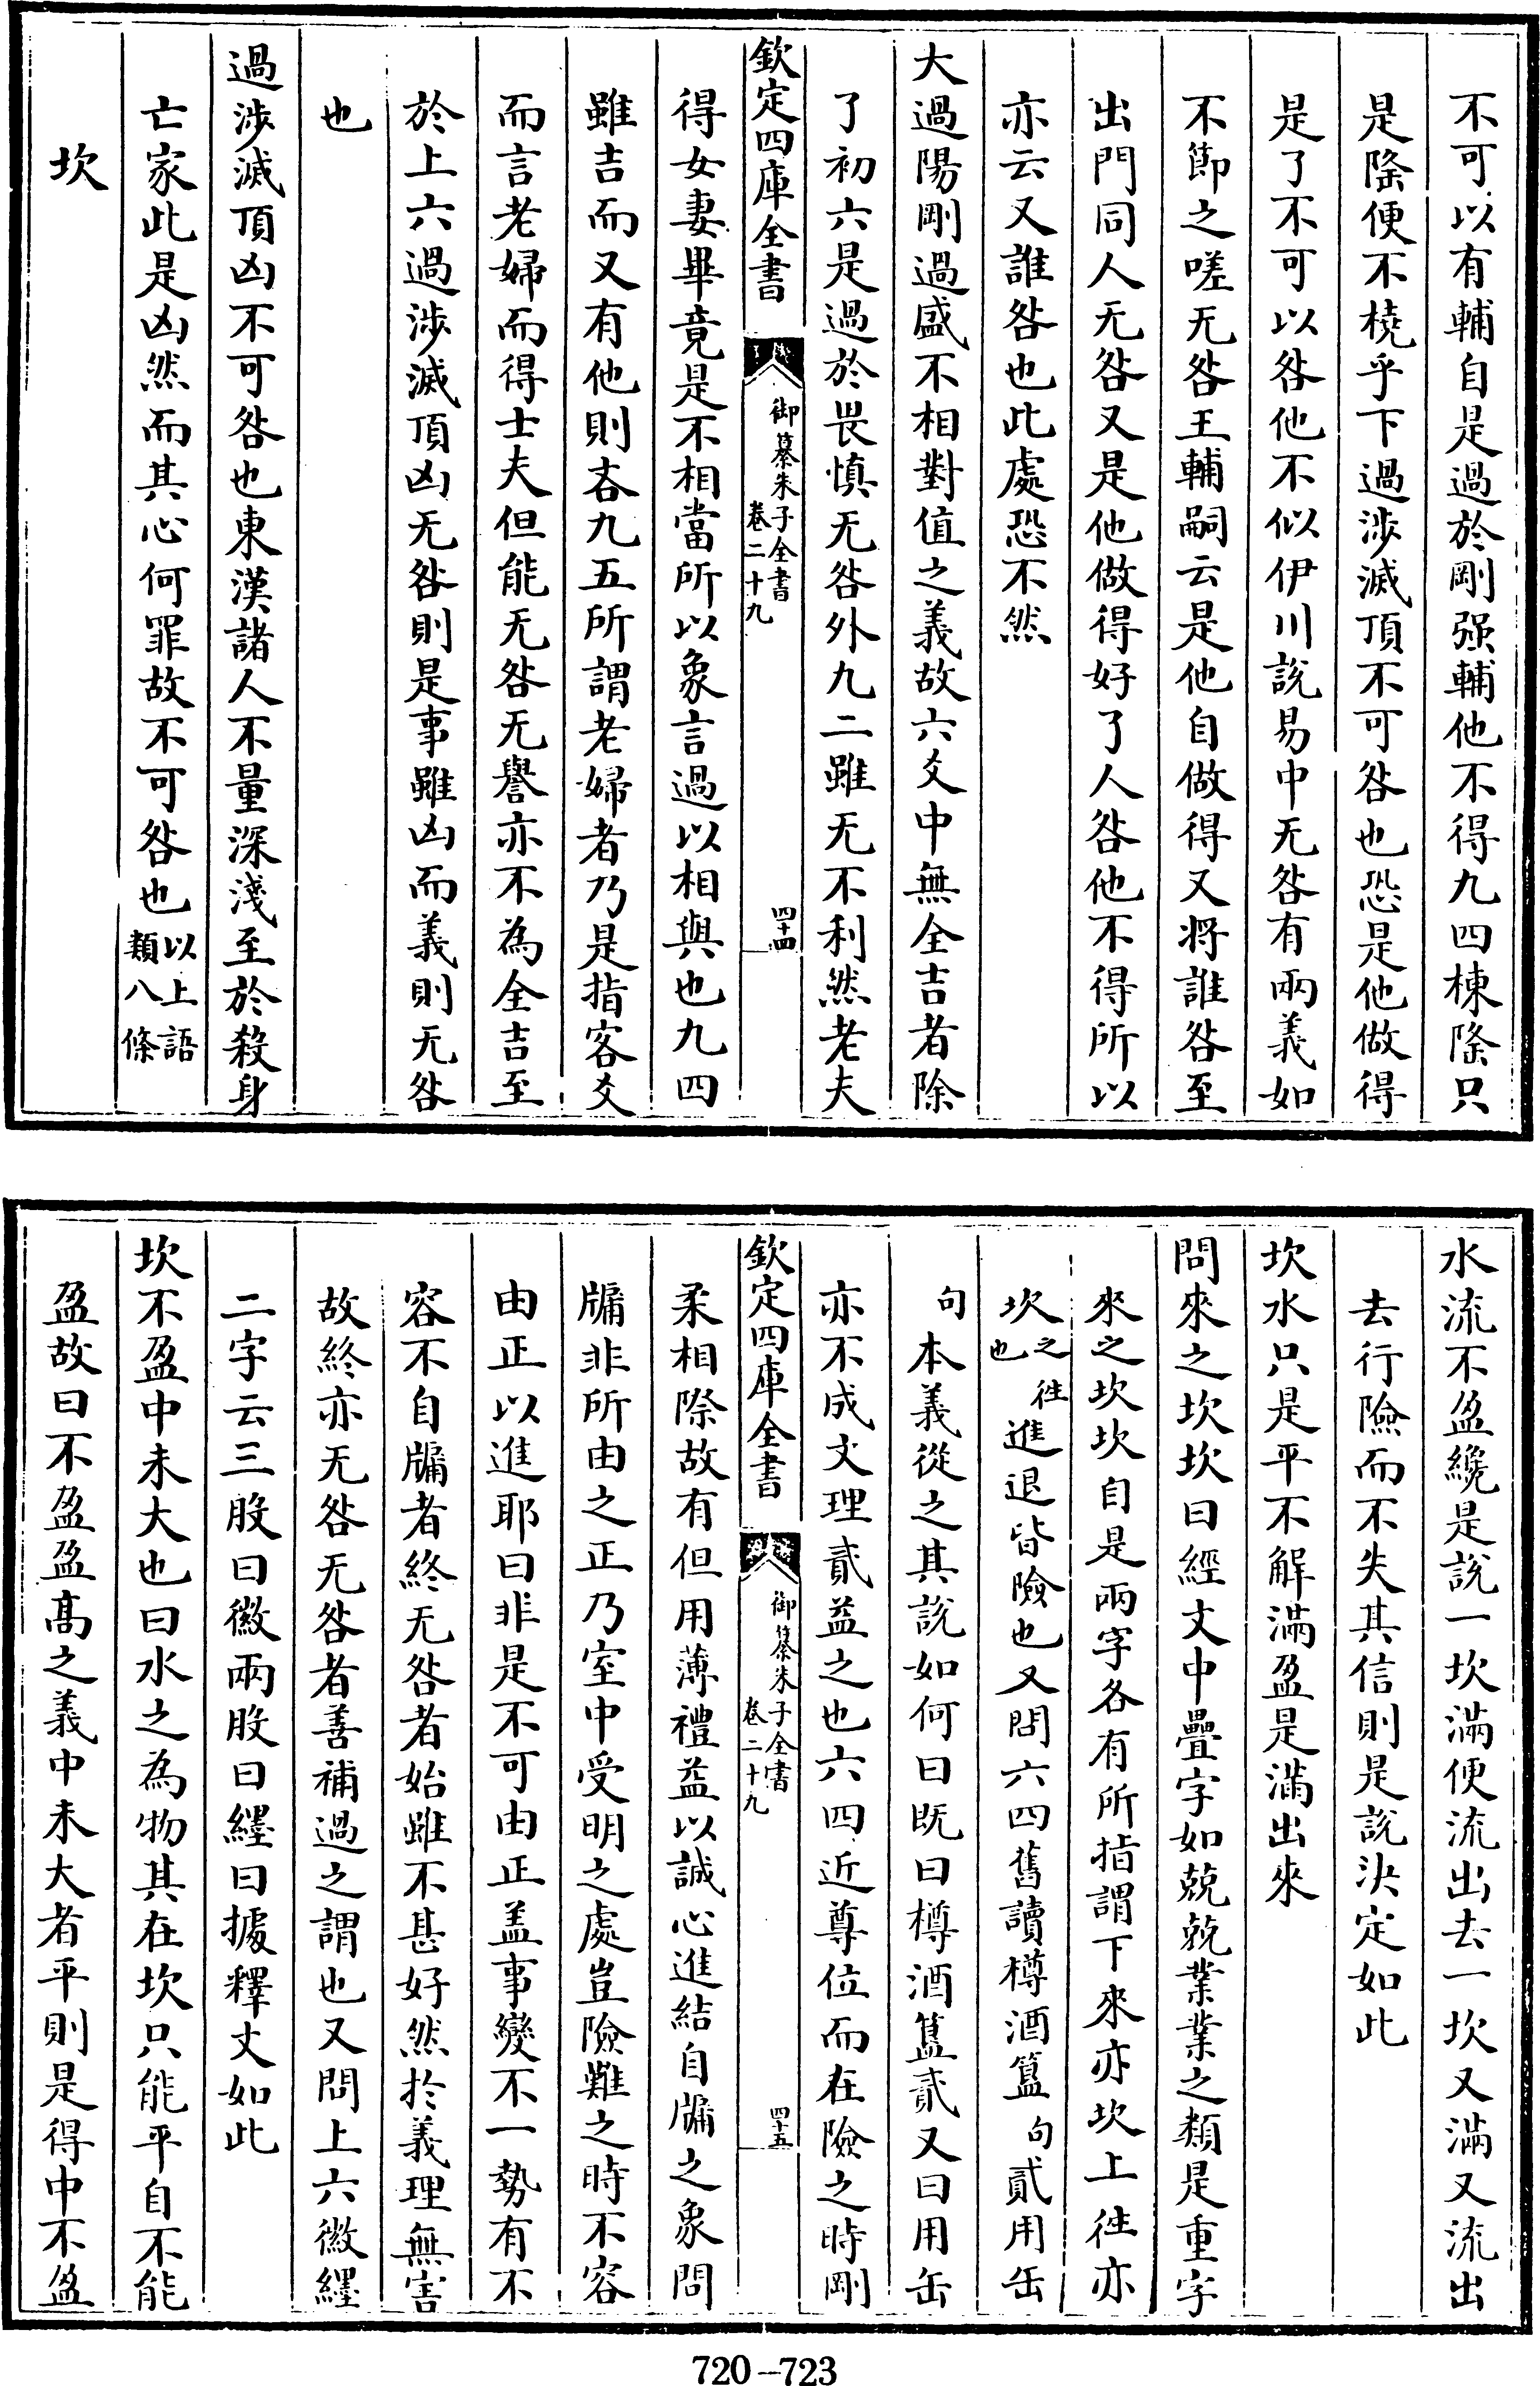 不可以有輔自是過於剛强輔他不得九四棟隆只
是隆便不橈乎下過涉滅頂不可咎也恐是他做得
是了不可以咎他不似伊川說易中无咎有兩義如
不節之嗟无咎王輔嗣云是他自做得又將誰咎至
出門同人无咎又是他做得好了人咎他不得所以
亦云又誰咎也此處恐不然
大過陽剛過盛不相對值之義故六爻中無全吉者除
了初六是過於畏慎无咎外九二雖无不利然老夫
欽定四庫全書
御纂朱子全書
卷二十九
四十四
得女妻畢竟是不相當所以象言過以相與也九四
雖吉而又有他則吝九五所謂老婦者乃是指客爻
而言老婦而得士夫但能无咎无譽亦不為全吉至
於上六過涉滅頂凶无咎則是事雖凶而義則无咎
也
過涉滅頂凶不可咎也東漢諸人不量深淺至於殺身
亡家此是凶然而其心何罪故不可咎也以上語類八條
坎
水流不盈纔是說一坎滿便流出去一坎又滿又流出
去行險而不失其信則是說決定如此
坎水只是平不解滿盈是滿出來
問來之坎坎曰經文中疊字如兢兢業業之類是重字
來之坎坎自是兩字各有所指謂下來亦坎上往亦
坎之往也進退皆險也又問六四舊讀樽酒簋句貳用缶
句本義從之其說如何曰既曰樽酒簋貳又曰用缶
亦不成文理貳益之也六四近尊位而在險之時剛
欽定四庫全書
御纂朱子全書
卷二十九
四十五
柔相際故有但用薄禮益以誠心進結自牖之象問
牖非所由之正乃室中受明之處豈險難之時不容
由正以進耶曰非是不可由正盖事變不一勢有不
容不自牖者終无咎者始雖不甚好然於義理無害
故終亦无咎无咎者善補過之謂也又問上六徽纆
二字云三股曰徽兩股曰纆曰據釋文如此
坎不盈中未大也曰水之為物其在坎只能平自不能
盈故曰不盈盈高之義中未大者平則是得中不盈
720-723